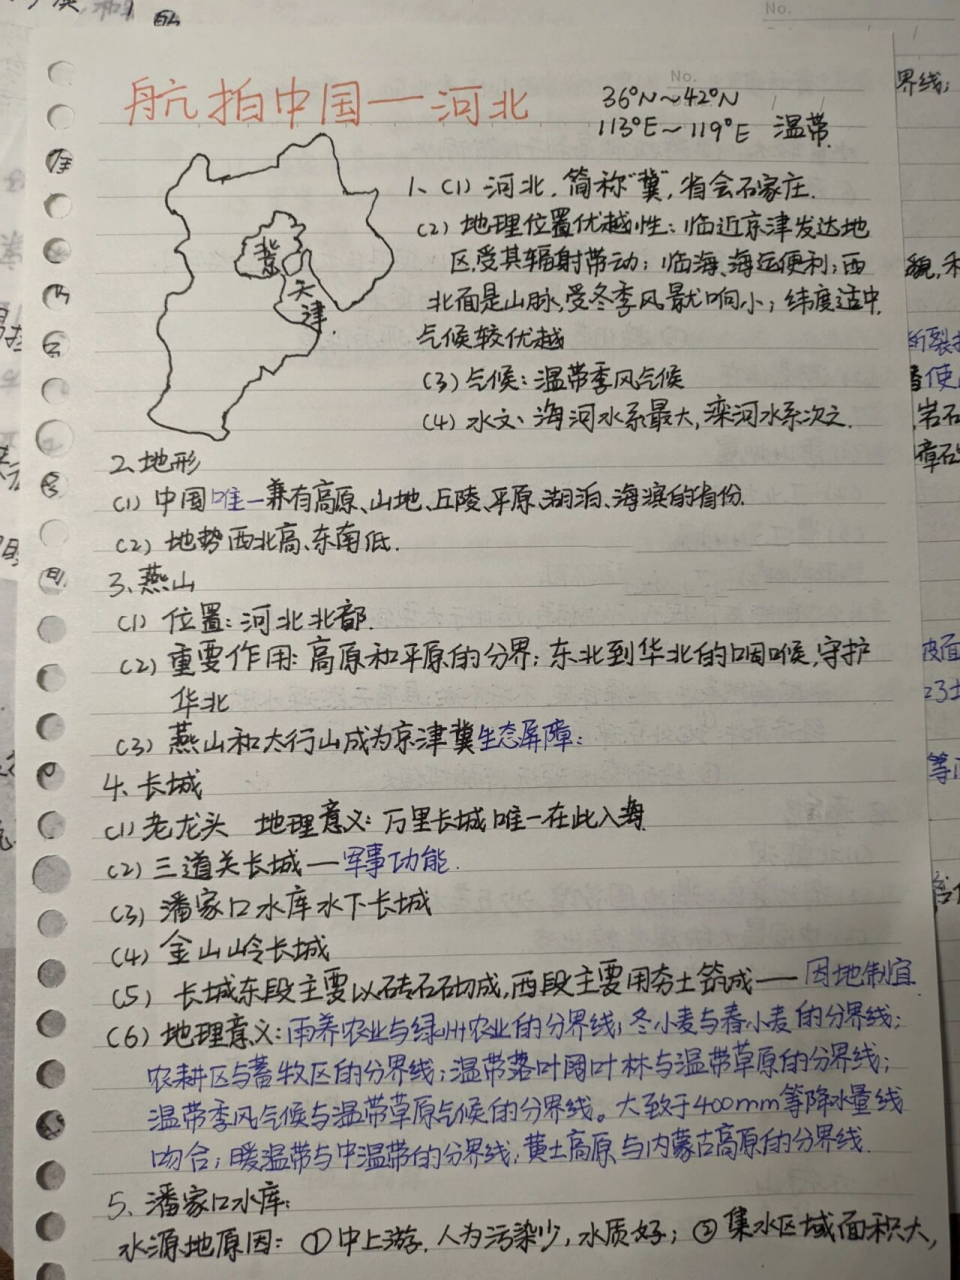 No.
No.
航拍中国—河北
36°N～42°N
113°E～119°E 温带
冀
天
津
1、(1) 河北，简称"冀"，省会石家庄.
(2) 地理位置优越性：临近京津发达地
区,受其辐射带动；临海、海运便利；西
北面是山脉,受冬季风影响小；纬度适中,
气候较优越
(3) 气候：温带季风气候
(4) 水文、海河水系最大,滦河水系次之.
2.地形
(1) 中国唯一兼有高原、山地、丘陵、平原、湖泊、海滨的省份.
(2) 地势西北高、东南低.
3.燕山
(1) 位置：河北北部.
(2) 重要作用：高原和平原的分界；东北到华北的咽喉,守护
华北
(3) 燕山和太行山成为京津冀生态屏障；
4、长城
(1) 老龙头 地理意义：万里长城唯一在此入海.
(2) 三道关长城—军事功能.
(3) 潘家口水库水下长城
(4) 金山岭长城
(5) 长城东段主要以砖石砌成,西段主要用夯土筑成——因地制宜
(6) 地理意义：雨养农业与绿洲农业的分界线；冬小麦与春小麦的分界线；
农耕区与畜牧区的分界线；温带落叶阔叶林与温带草原的分界线；
温带季风气候与温带草原气候的分界线。大致于400mm等降水量线
吻合；暖温带与中温带的分界线；黄土高原与内蒙古高原的分界线.
5、潘家口水库：
水源地原因：①中上游，人为污染少，水质好；②集水区域面积大，
界线；